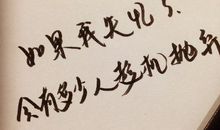 如果我失忆了
会有多少人趁机抛弃